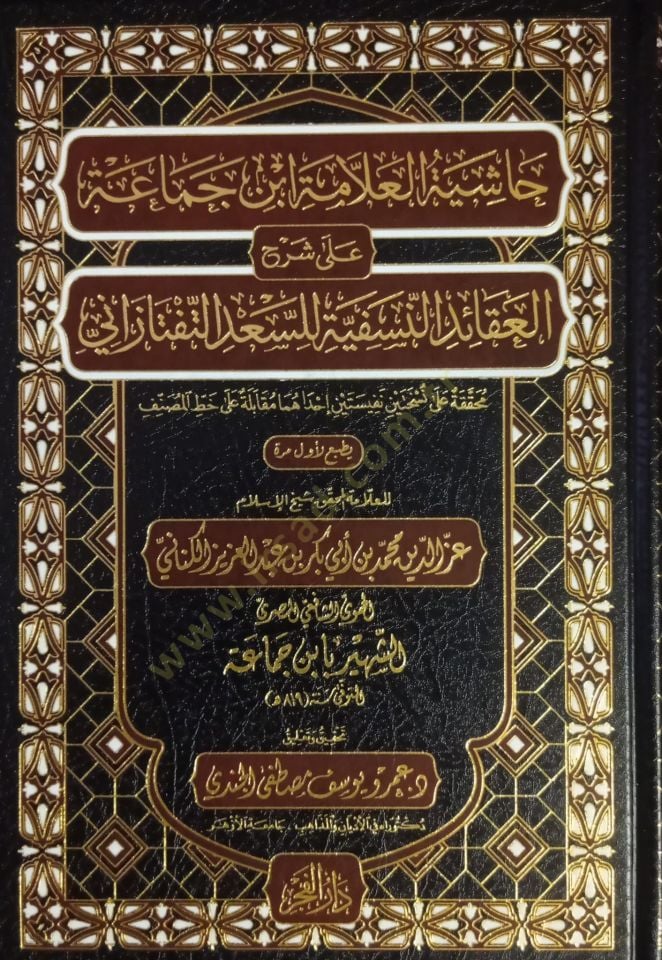 حَاشِيَةُ العَلَّامَةِ ابْنِ جَمَاعَة
عَلَى شَرْحِ
العَقَائِدِ النَّسَفِيَّةِ لِلسَّعْدِ التَّفْتَازَانِيّ
مُحَقَّقَةٌ عَلَى نُسْخَتَيْنِ نَفِيسَتَيْنِ إِحْدَاهُمَا مُقَابَلَةٌ عَلَى خَطِّ المُصَنِّف
يطبع لأول مرة
للعلامة المحقق شيخ الإسلام
عز الدين محمد بن أبي بكر بن عبد العزيز الكناني
الحموي الشافعي المصري
الشهير بابن جماعة
المتوفى سنة (٨١٩هـ)
تحقيق وتعليق
د. عمرو يوسف مصطفى الجندي
دكتوراه في الأديان والمذاهب، جامعة الأزهر
دار الفجر